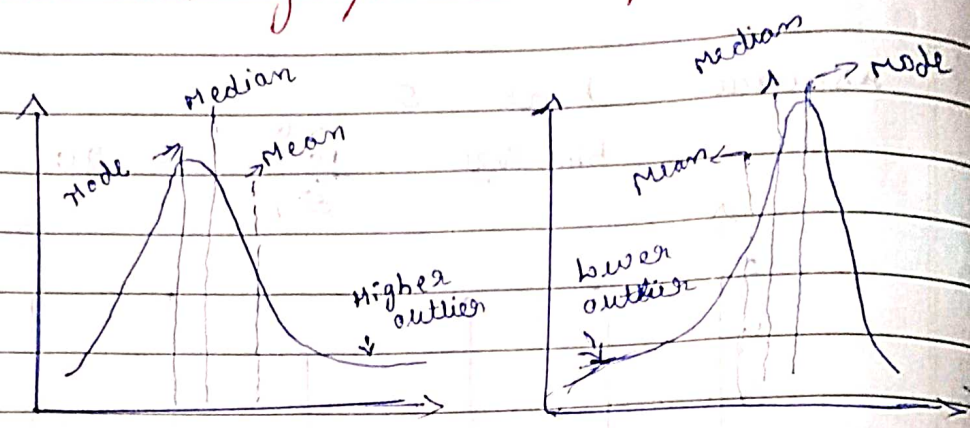 Median
Mode
Mean
Higher
outlier
Median
Mode
Mean
Lower
outlier